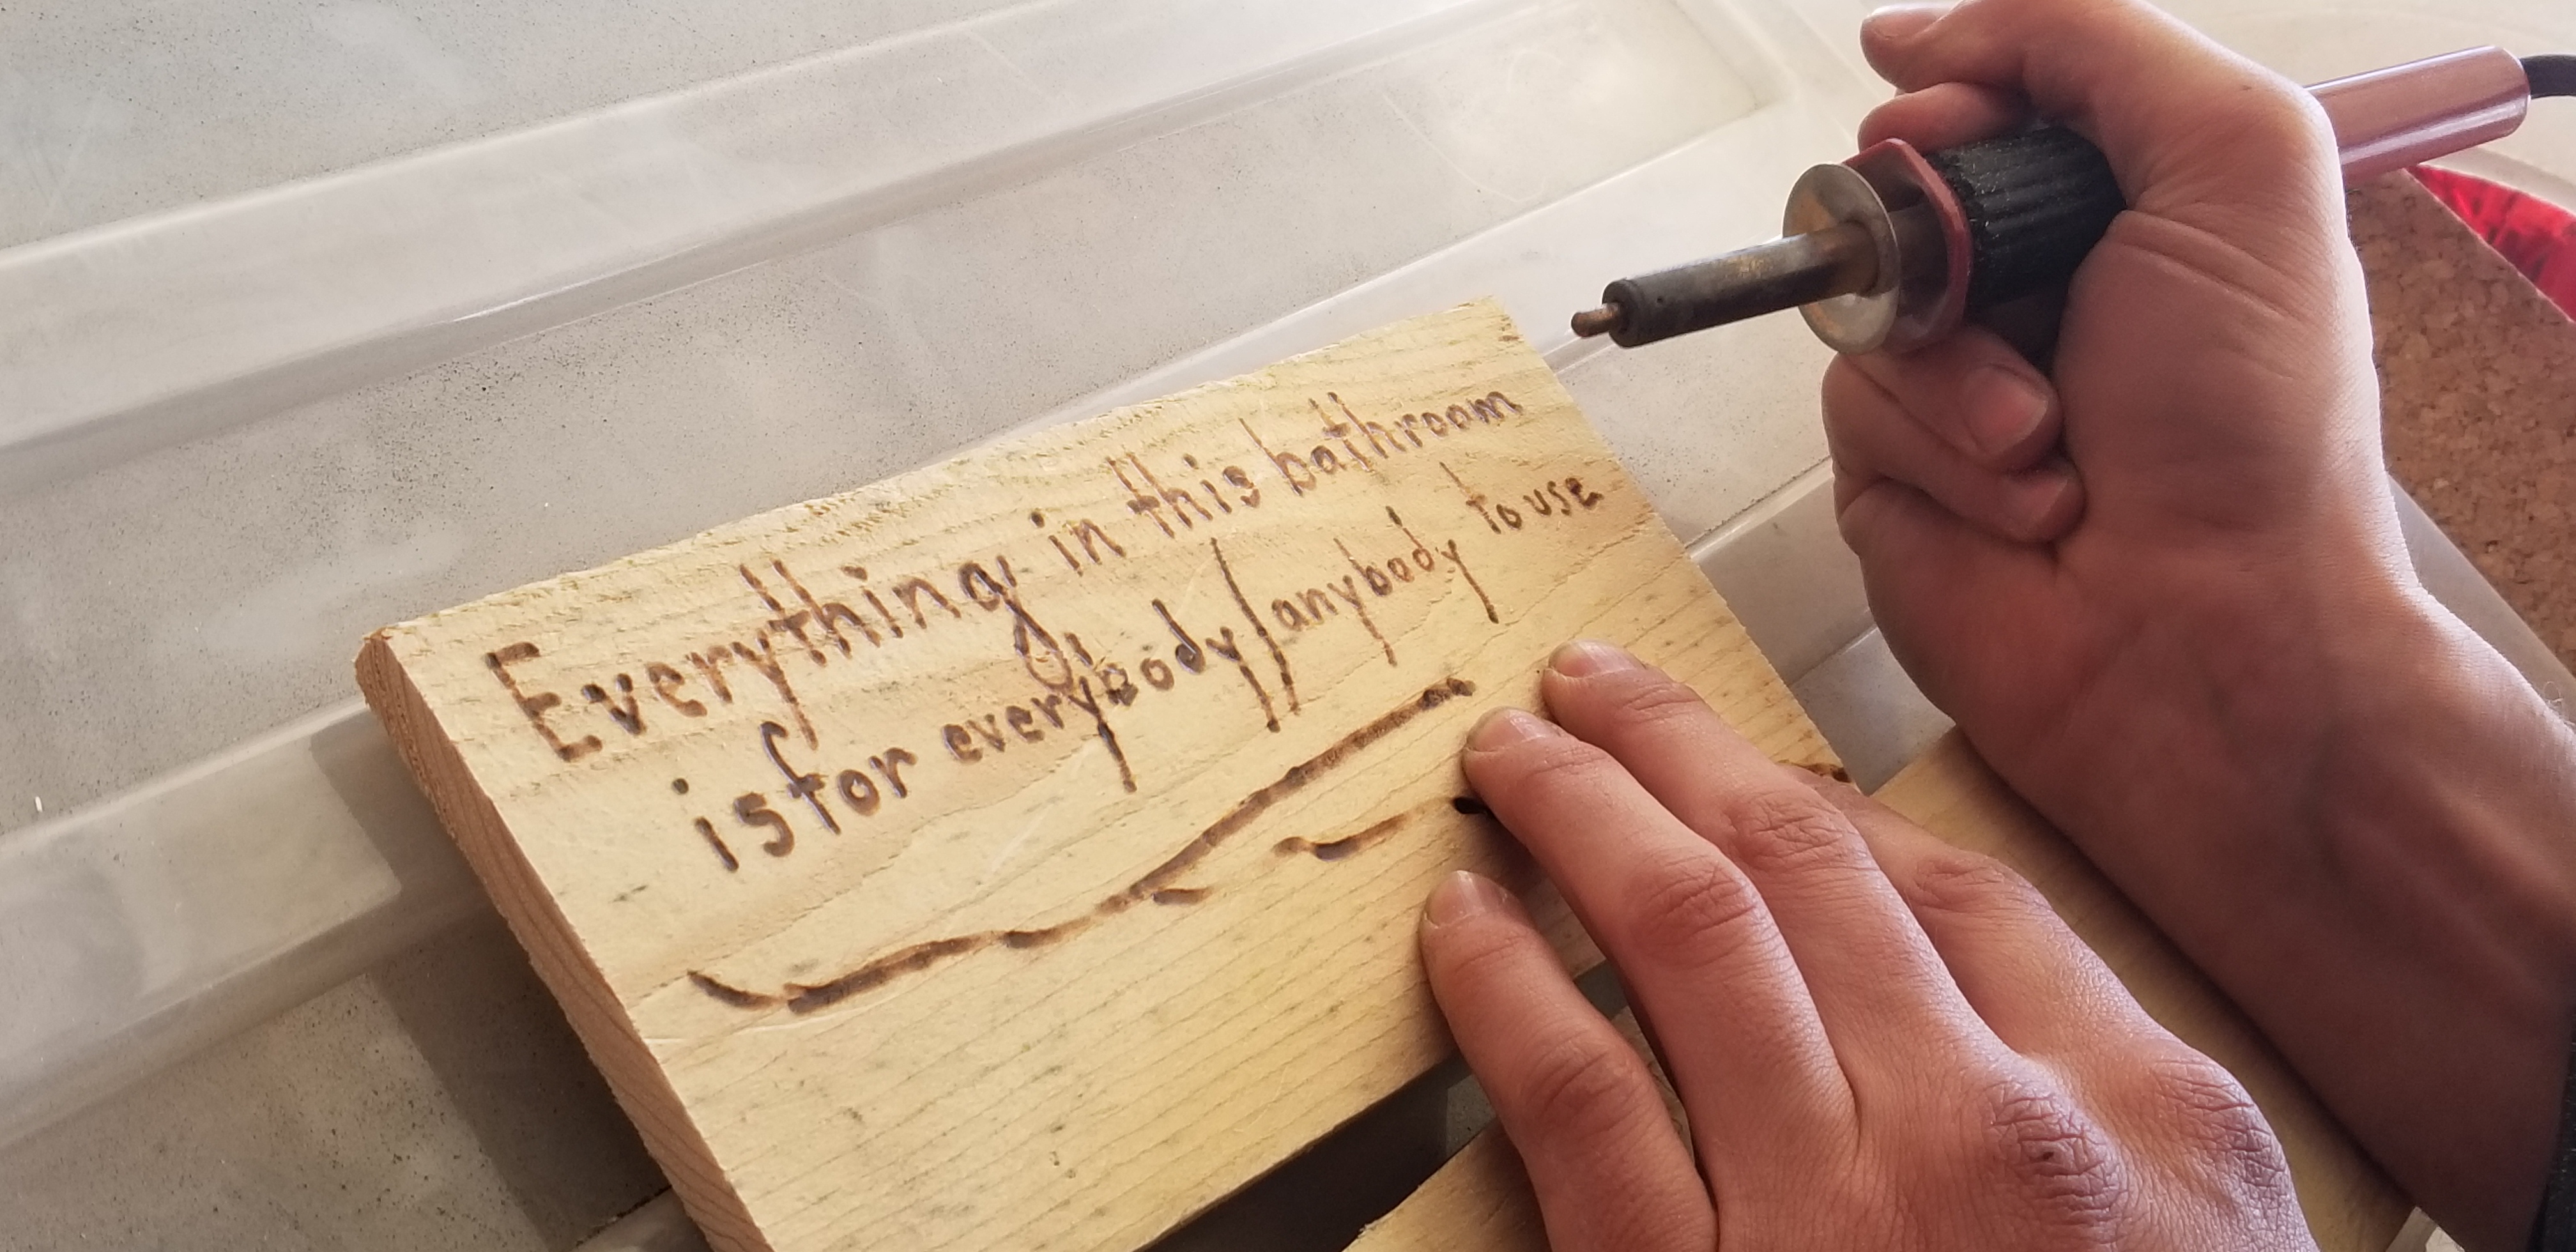 Everything in this bathroom
is for everybody/anybody to use